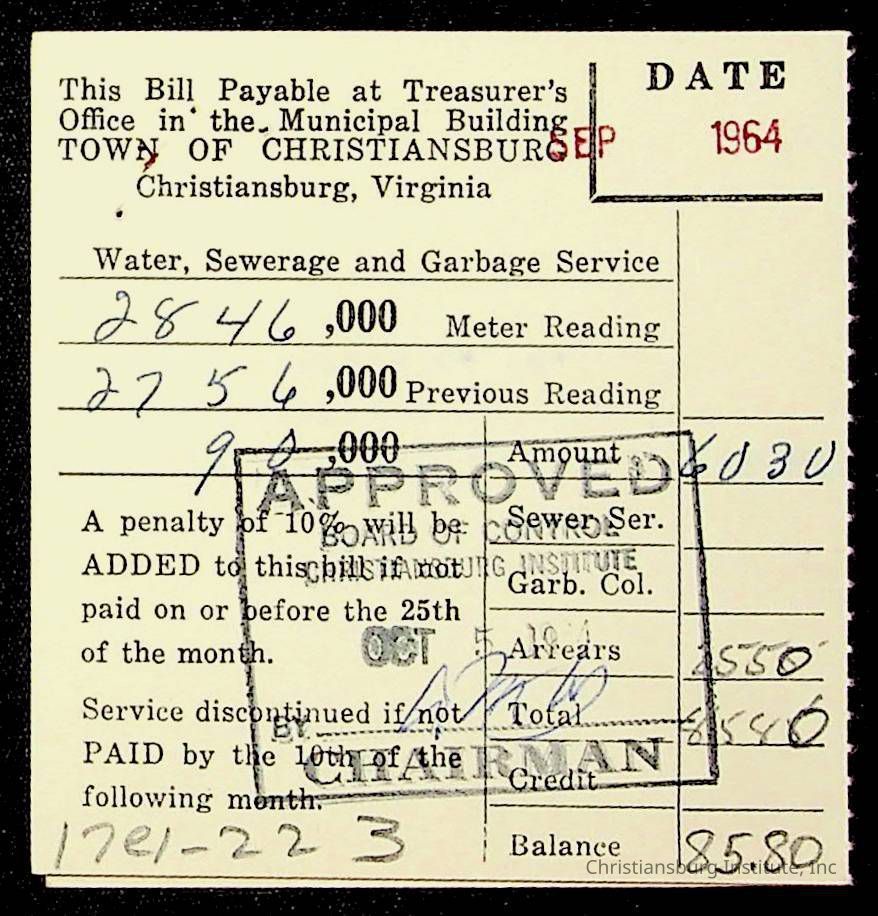 DATE
This Bill Payable at Treasurer's
Office in the Municipal Building
TOWN OF CHRISTIANSBURG
SEP 1964
Christiansburg, Virginia
Water, Sewerage and Garbage Service
2846,000 Meter Reading
2756,000 Previous Reading
90,000 Amount 6030
APPROVED
BOARD OF CONTROL
CHRISTIANSBURG INSTITUTE
OCT 5
BY
CHAIRMAN
A penalty of 10% will be
ADDED to this bill if not
paid on or before the 25th
of the month.
Service discontinued if not
PAID by the 10th of the
following month.
Sewer Ser.
Garb. Col.
Arrears 2550
Total
Credit
Balance 85.80
3
Christiansburg Institute, Inc